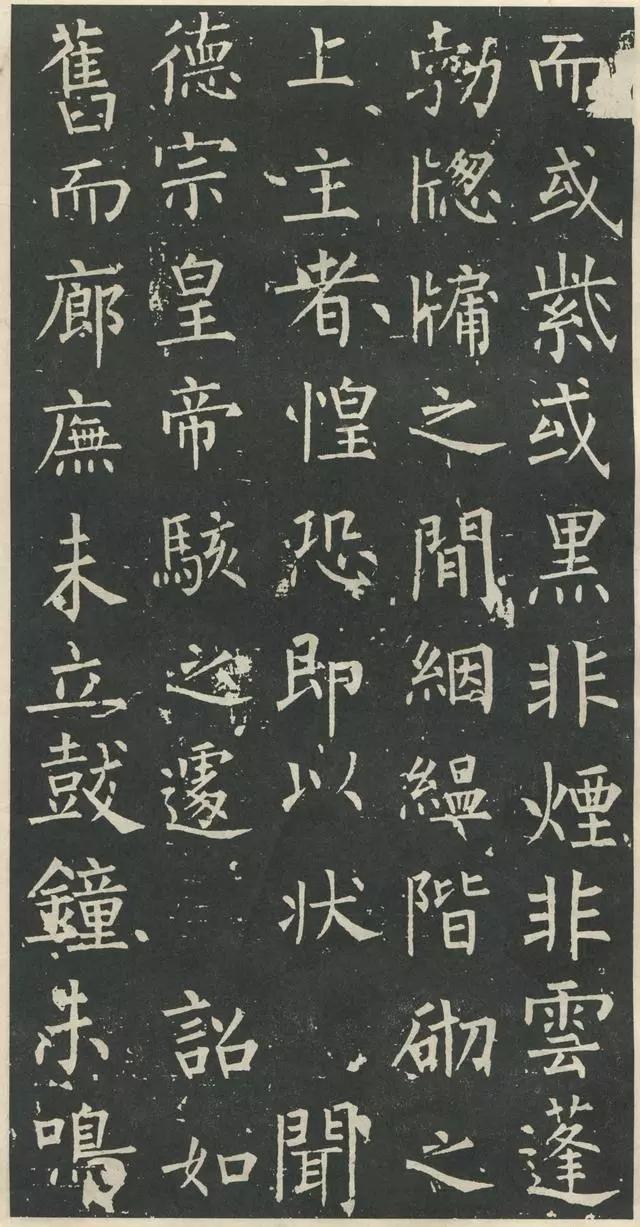 而或紫或黒非煙非雲蓬
勃窻牖之間絪緼階砌之
上主者惶恐即以状 聞
德宗皇帝駭之遽 詔如
舊而廊廡未立鼓鐘未鳴